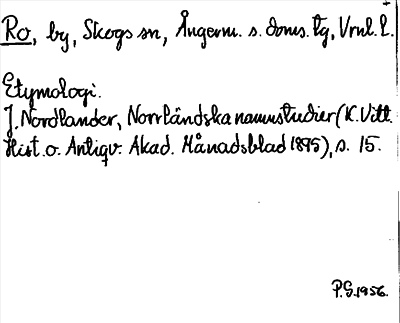 Ro, by, Skogs sn, Ångerm. s. doms. tg, Vrnl. l.
Etymologi.
J. Nordlander, Norrländska namnstudier (K. Vitt.
Hist. o. Antiqv. Akad. Månadsblad 1895), s. 15.
P.G. 1956.